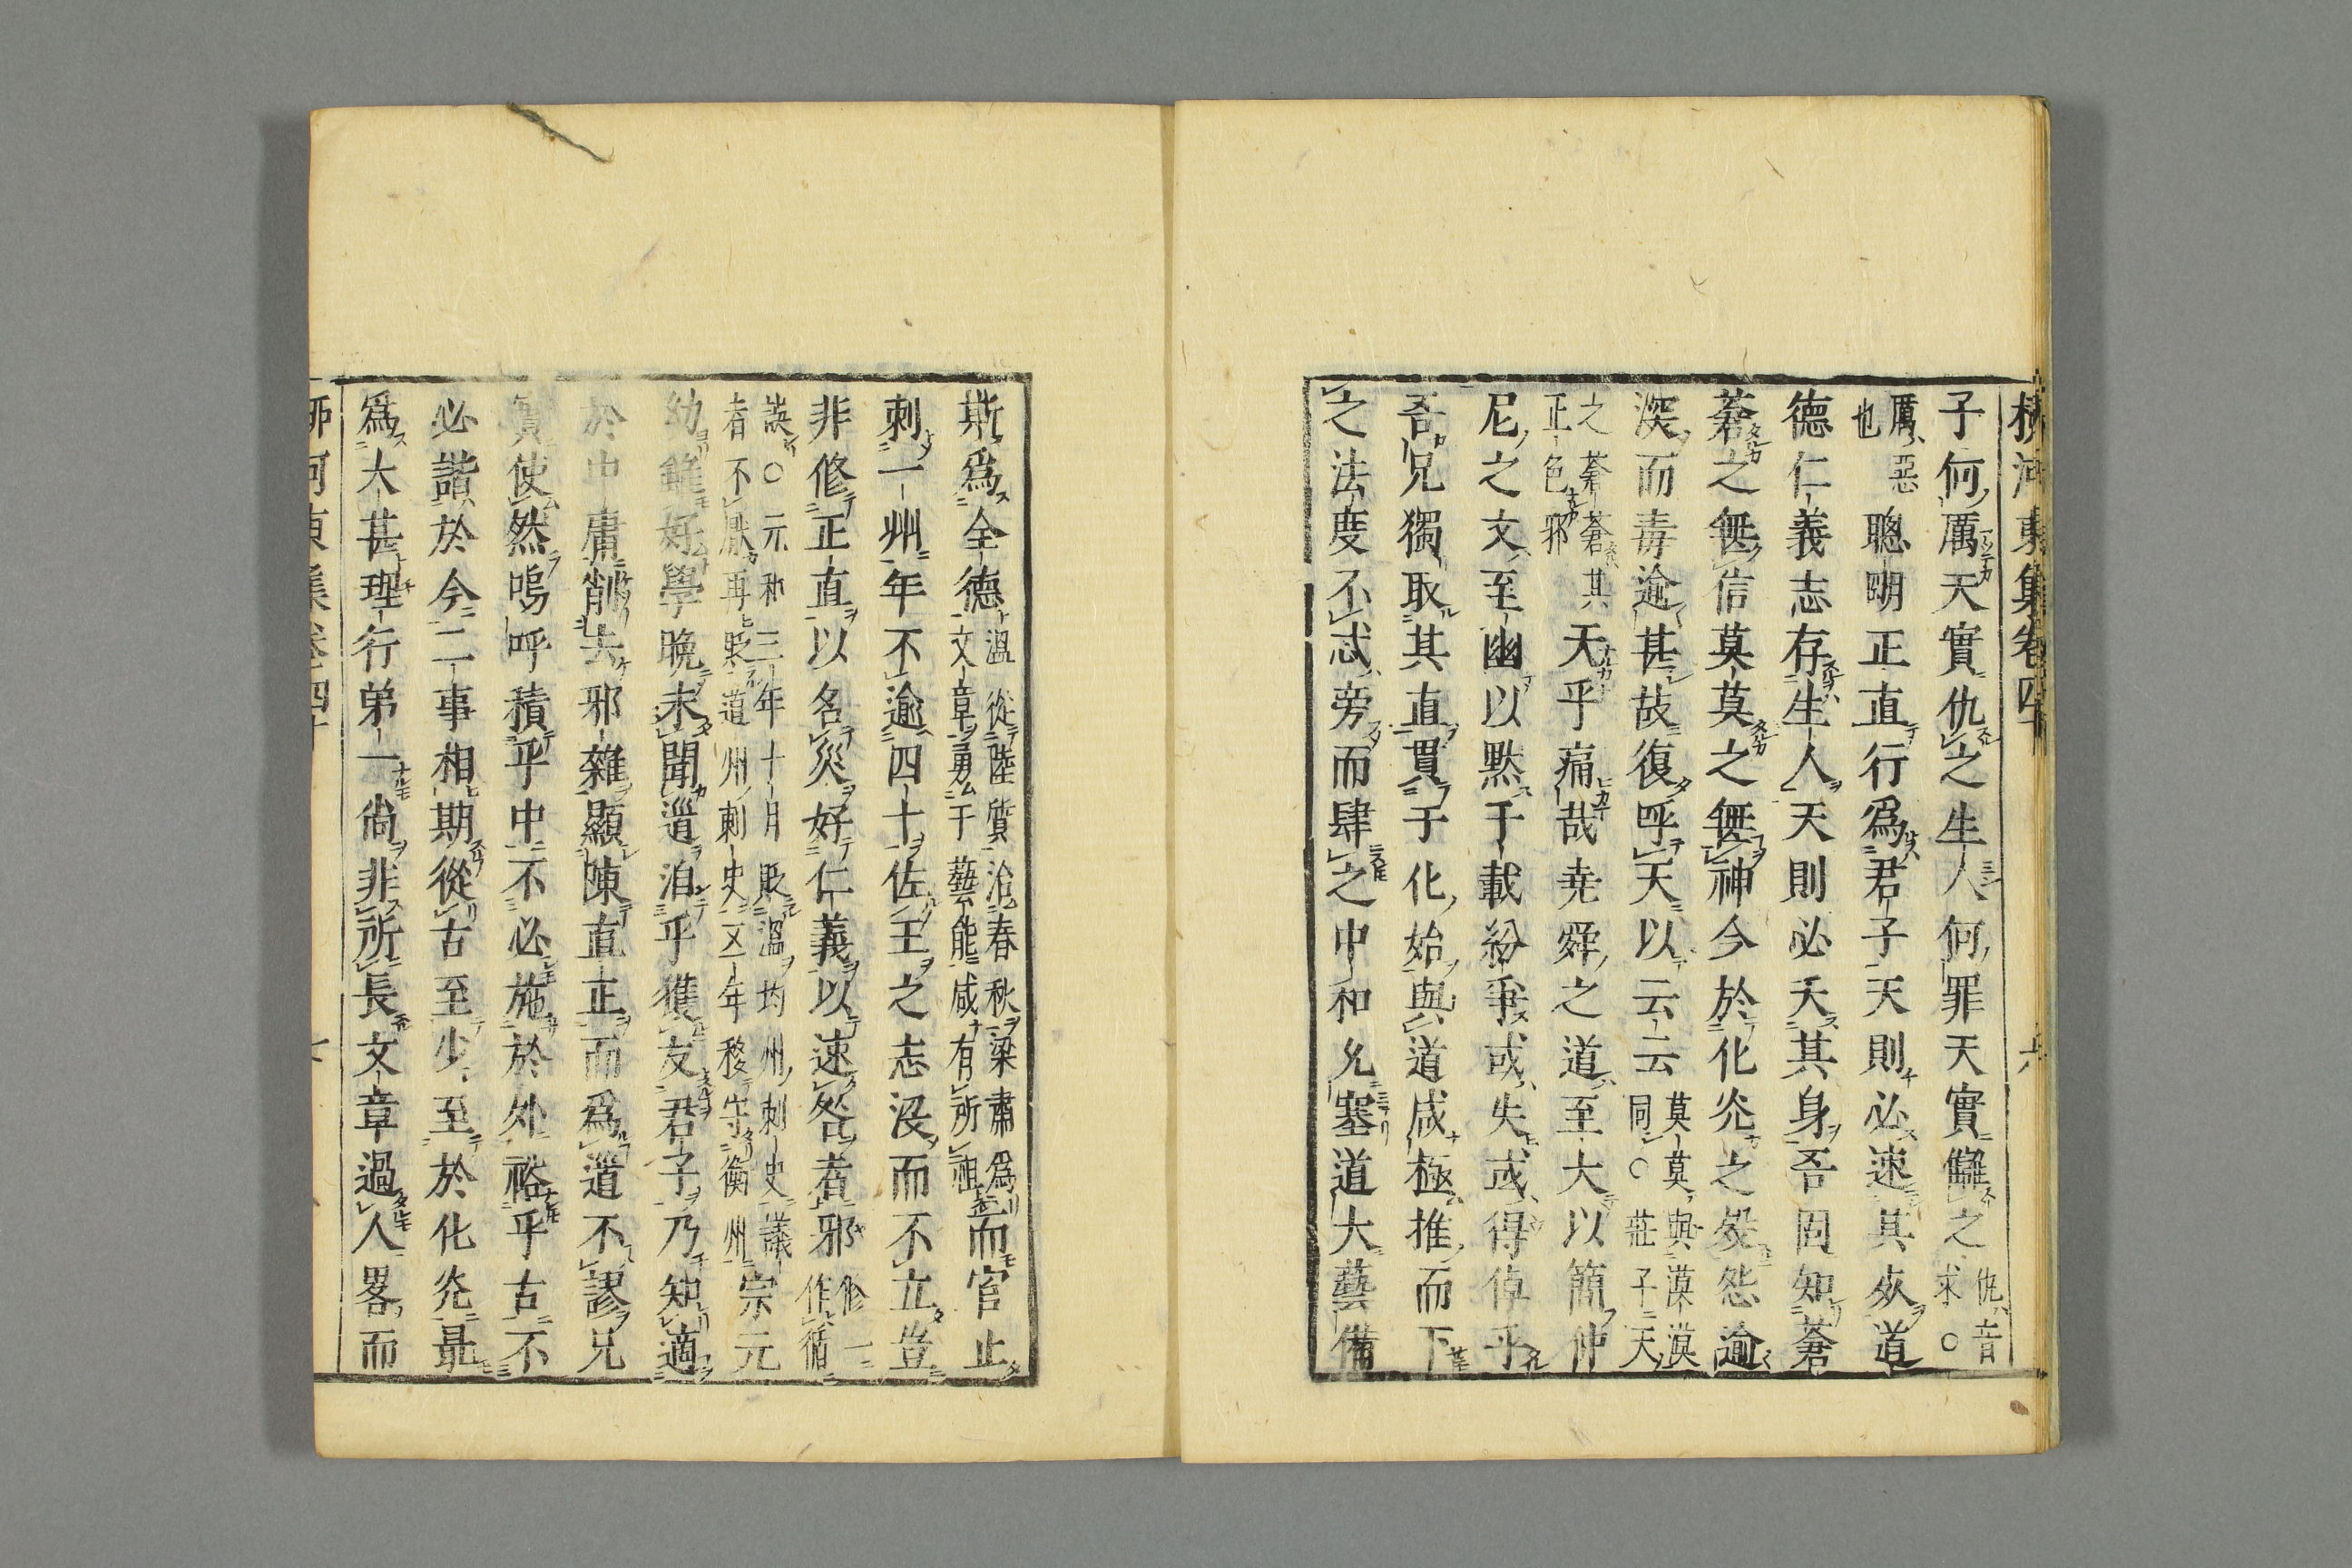 柳河東集卷四十 六
子何厲天實仇之生人何罪天實讎之仇音求○
厲惡也聰明正直行爲君子天則必速其死道
德仁義志存生人天則必夭其身吾固知蒼
蒼之無信莫莫之無神今於化光之歿怨逾
深而毒逾甚故復呼天以云云莫莫與漠漠同○莊子天
之蒼蒼其正色邪天乎痛哉堯舜之道至大以簡仲
尼之文至幽以默千載紛爭或失或得倬乎
吾兄獨取其直貫于化始與道咸極推而下
之法度不忒旁而肆之中和允塞道大藝備
斯爲全德溫從陸質治春秋梁肅爲文章勇于藝能咸有所祖而官止
刺一州年不逾四十佐王之志沒而不立豈
非修正直以名災好仁義以速咎者邪修一作循
誤○元和三年十月貶溫均州刺史議者不厭再貶道州刺史五年移守衡州宗元
幼雖好學晚未聞道洎乎獲友君子乃知適
於中庸削去邪雜顯陳直正而爲道不謬兄
實使然嗚呼積乎中不必施於外裕乎古不
必諧於今二事相期從古至少至於化光最
爲太甚理行弟一尚非所長文章過人畧而
柳河東集卷四十